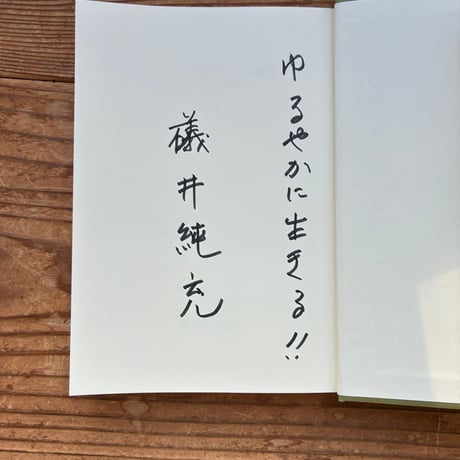 ゆるやかに生きる!!
礒井純充